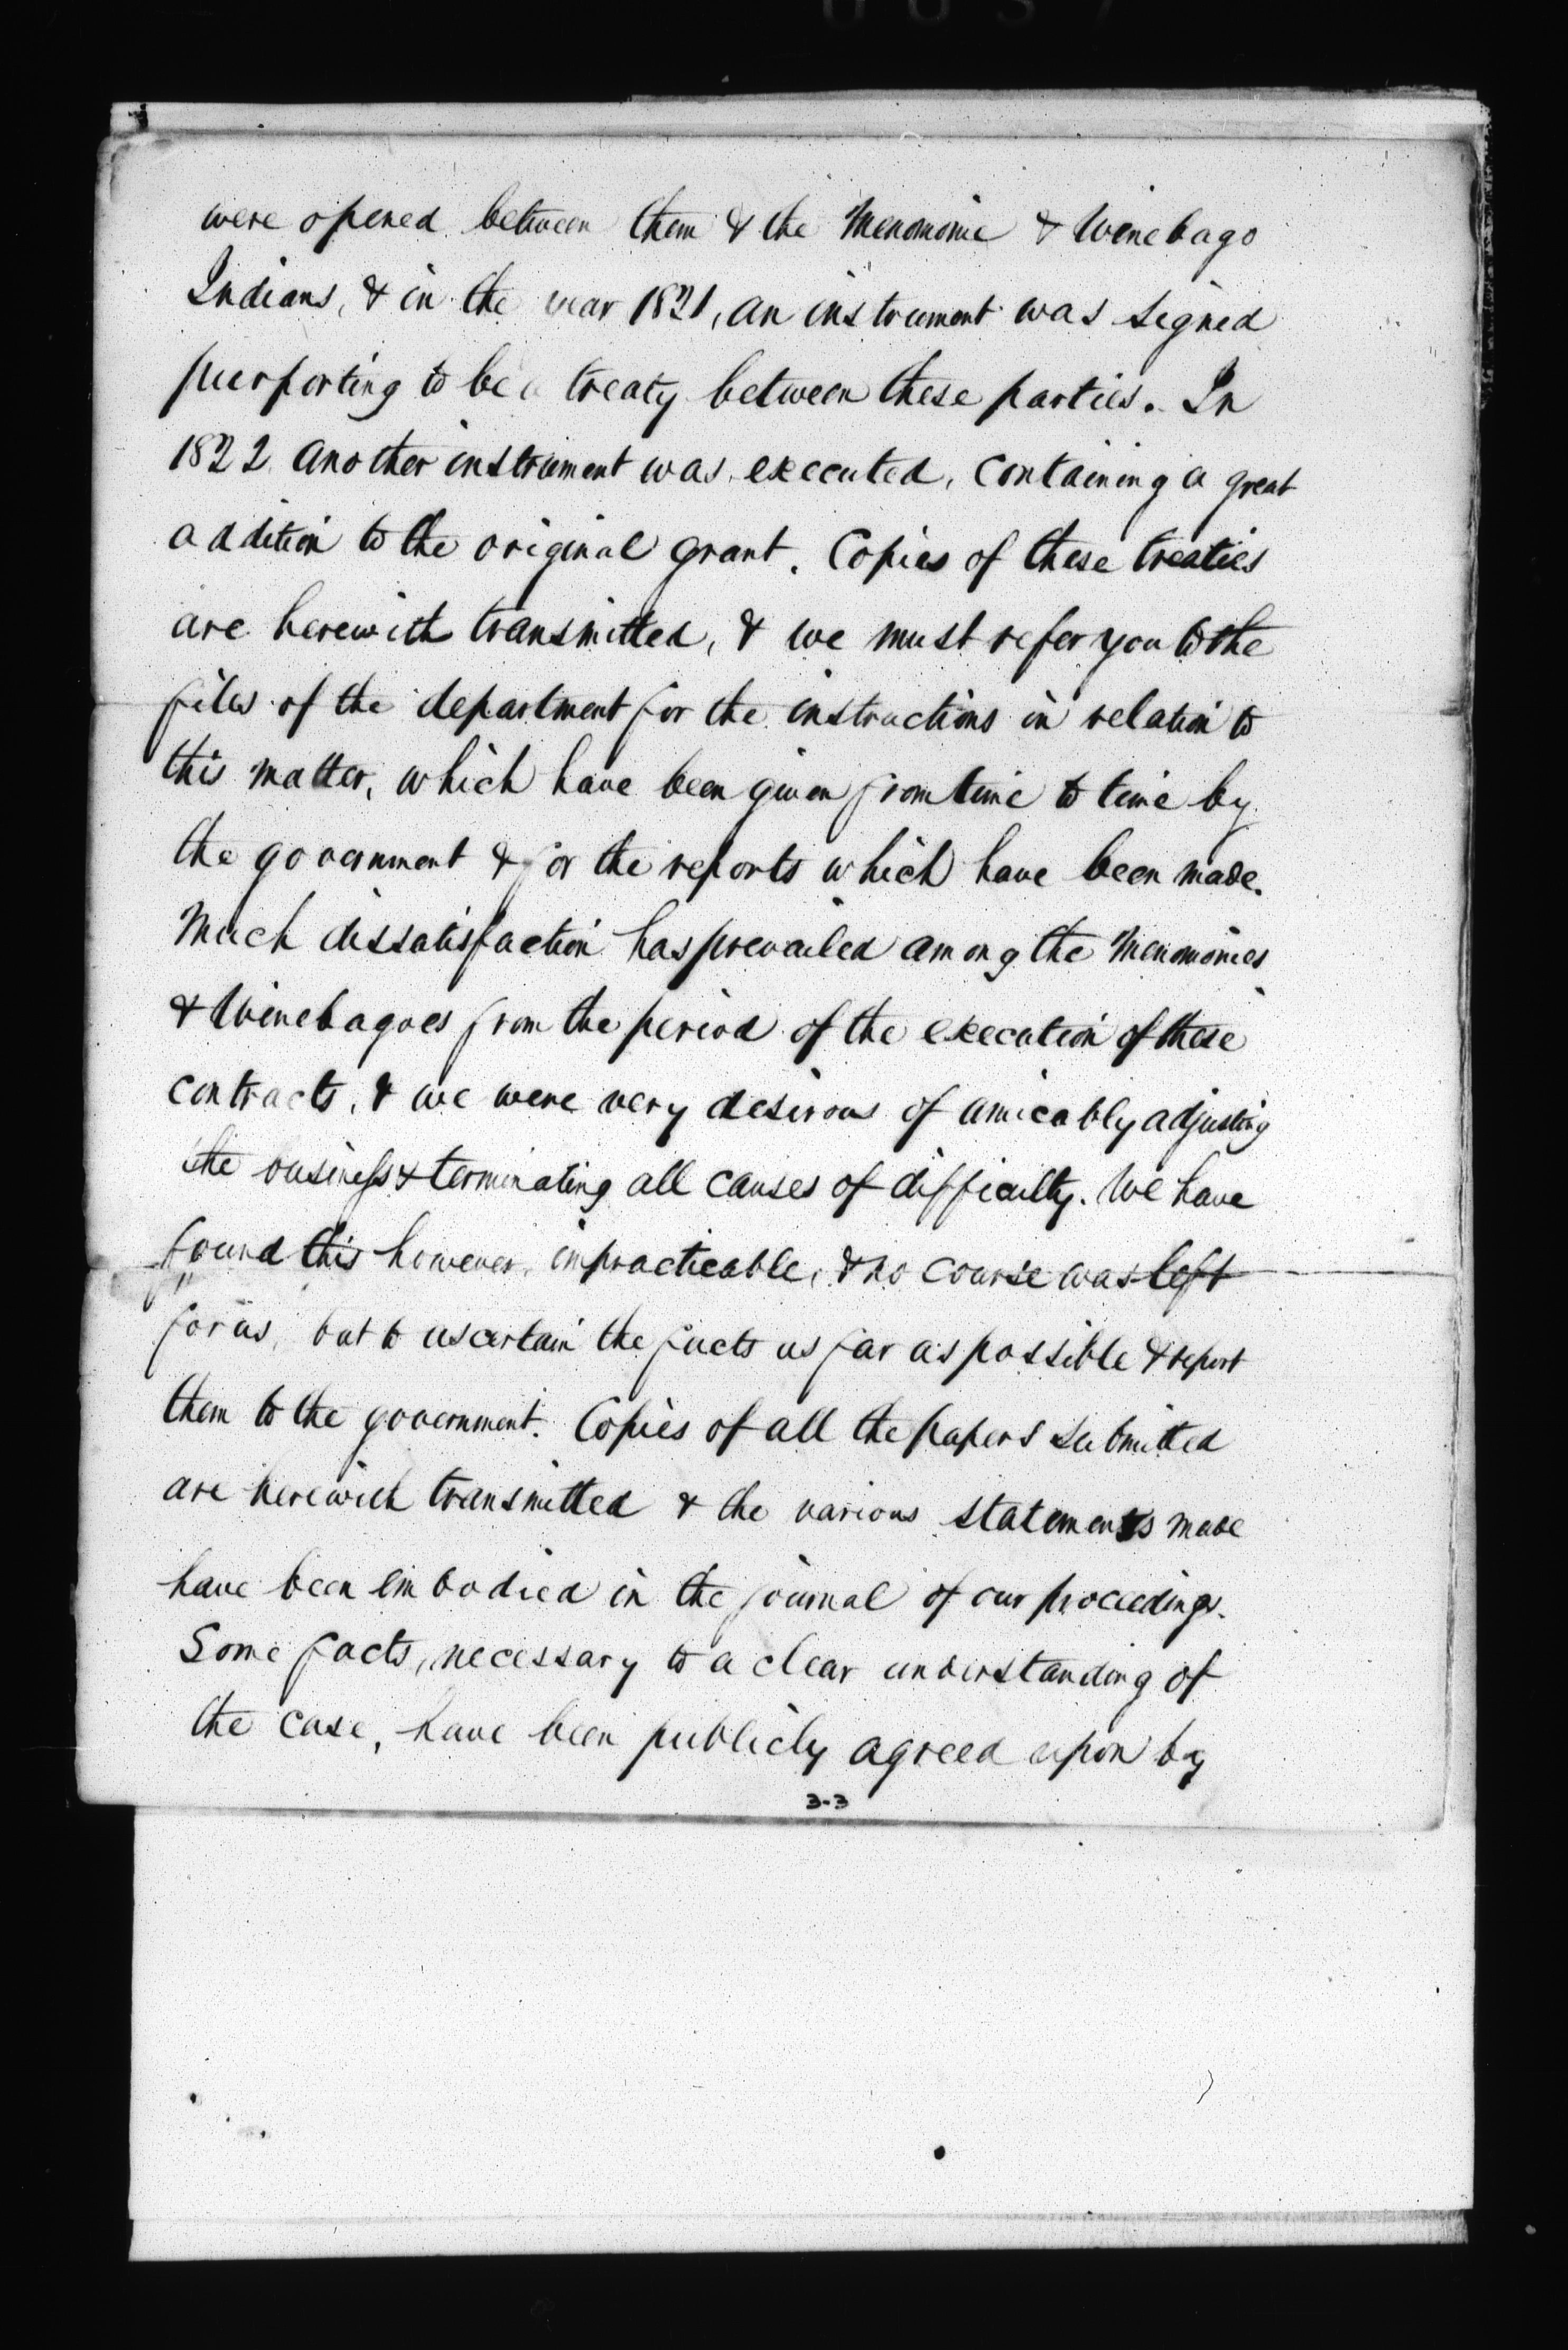 were opened between them & the Menomonie & Winebago
Indians, & in the year 1821, an instrument was signed
purporting to be a treaty between these parties. In
1822 another instrument was executed, containing a great
addition to the original grant. Copies of these treaties
are herewith transmitted, & we must refer you to the
files of the department for the instructions in relation to
this matter, which have been given from time to time by
the government & for the reports which have been made.
Much dissatisfaction has prevailed among the Menomonies
& Winebagoes from the period of the execution of these
contracts, & we were very desirous of amicably adjusting
the business & terminating all causes of difficulty. We have
found this however impracticable, & no course was left
for us, but to ascertain the facts as far as possible & report
them to the government. Copies of all the papers submitted
are herewith transmitted & the various statements made
have been embodied in the journal of our proceedings.
Some facts, necessary to a clear understanding of
the case, have been publicly agreed upon by
3-3